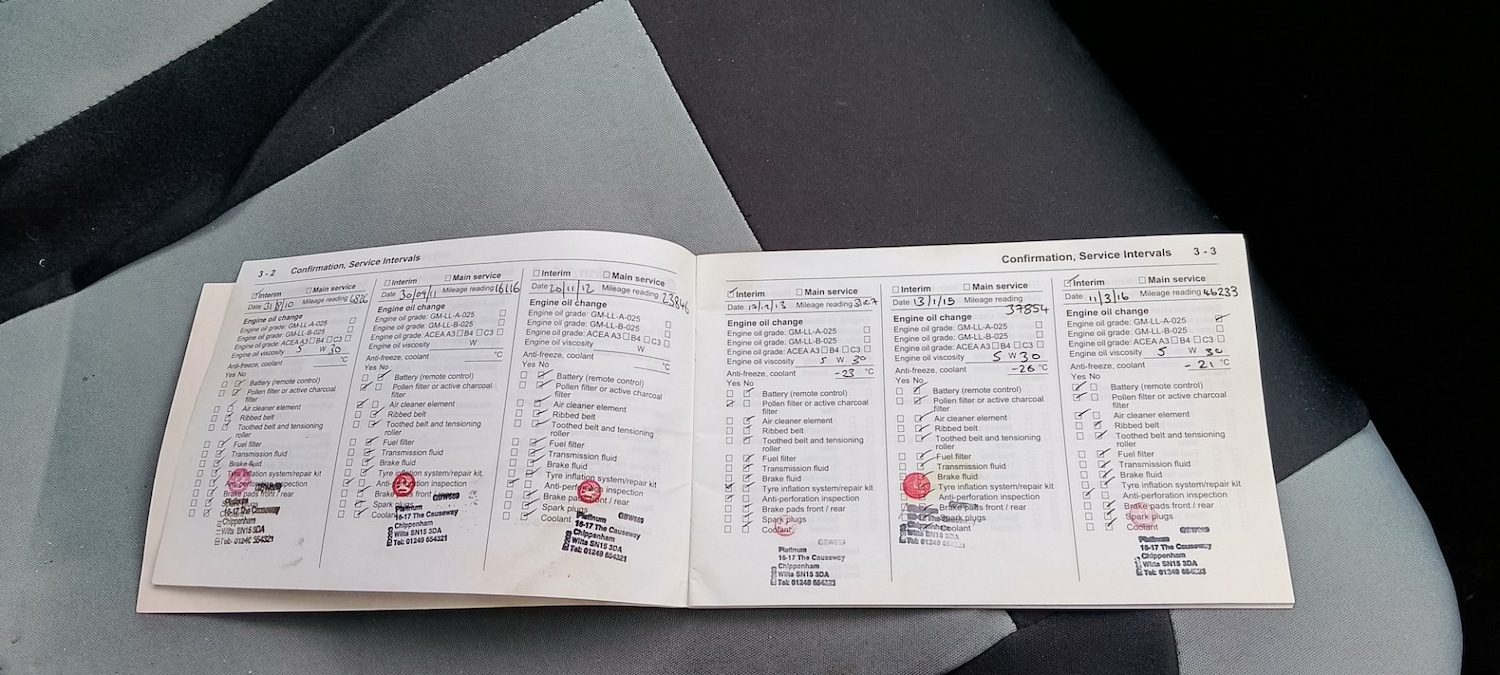 3 - 2 Confirmation, Service Intervals
Interim Main service
Date 31/8/10 Mileage reading
Engine oil change
Engine oil grade: GM-LL-A-025
Engine oil grade: GM-LL-B-025
Engine oil grade: ACEA A3 B4 C3
Engine oil viscosity 5 W 30
Anti-freeze, coolant °C
Yes No
Battery (remote control)
Pollen filter or active charcoal
filter
Air cleaner element
Ribbed belt
Toothed belt and tensioning
roller
Fuel filter
Transmission fluid
Brake fluid
Tyre inflation system/repair kit
Anti-perforation inspection
Brake pads front / rear
Spark plugs
16-17 The Causeway
Chippenham
Wilts SN15 3DA
Tel: 01249 654321
Interim Main service
Date 30/09/11 Mileage reading 16116
Engine oil change
Engine oil grade: GM-LL-A-025
Engine oil grade: GM-LL-B-025
Engine oil grade: ACEA A3 B4 C3
Engine oil viscosity W
Anti-freeze, coolant °C
Yes No
Battery (remote control)
Pollen filter or active charcoal
filter
Air cleaner element
Ribbed belt
Toothed belt and tensioning
roller
Fuel filter
Transmission fluid
Brake fluid
Tyre inflation system/repair kit
Anti-perforation inspection
Brake pads front / rear
Spark plugs
Coolant
Platinum
16-17 The Causeway
Chippenham
Wilts SN15 3DA
Tel: 01249 654321
Interim Main service
Date 20/11/12 Mileage reading 23846
Engine oil change
Engine oil grade: GM-LL-A-025
Engine oil grade: GM-LL-B-025
Engine oil grade: ACEA A3 B4 C3
Engine oil viscosity W
Anti-freeze, coolant °C
Yes No
Battery (remote control)
Pollen filter or active charcoal
filter
Air cleaner element
Ribbed belt
Toothed belt and tensioning
roller
Fuel filter
Transmission fluid
Brake fluid
Tyre inflation system/repair kit
Anti-perforation inspection
Brake pads front / rear
Spark plugs
Coolant
Platinum
16-17 The Causeway
Chippenham
Wilts SN15 3DA
Tel: 01249 654321
Confirmation, Service Intervals 3 - 3
Interim Main service
Date Mileage reading
Engine oil change
Engine oil grade: GM-LL-A-025
Engine oil grade: GM-LL-B-025
Engine oil grade: ACEA A3 B4 C3
Engine oil viscosity 5 W 30
Anti-freeze, coolant -23 °C
Yes No
Battery (remote control)
Pollen filter or active charcoal
filter
Air cleaner element
Ribbed belt
Toothed belt and tensioning
roller
Fuel filter
Transmission fluid
Brake fluid
Tyre inflation system/repair kit
Anti-perforation inspection
Brake pads front / rear
Spark plugs
Coolant
Platinum
16-17 The Causeway
Chippenham
Wilts SN15 3DA
Interim Main service
Date 13/1/15 Mileage reading
37854
Engine oil change
Engine oil grade: GM-LL-A-025
Engine oil grade: GM-LL-B-025
Engine oil grade: ACEA A3 B4 C3
Engine oil viscosity 5 W 30
Anti-freeze, coolant -26 °C
Yes No
Battery (remote control)
Pollen filter or active charcoal
filter
Air cleaner element
Ribbed belt
Toothed belt and tensioning
roller
Fuel filter
Transmission fluid
Brake fluid
Tyre inflation system/repair kit
Anti-perforation inspection
Brake pads front / rear
Spark plugs
Coolant
Interim Main service
Date 11/3/16 Mileage reading 46233
Engine oil change
Engine oil grade: GM-LL-A-025
Engine oil grade: GM-LL-B-025
Engine oil grade: ACEA A3 B4 C3
Engine oil viscosity 5 W 30
Anti-freeze, coolant -21 °C
Yes No
Battery (remote control)
Pollen filter or active charcoal
filter
Air cleaner element
Ribbed belt
Toothed belt and tensioning
roller
Fuel filter
Transmission fluid
Brake fluid
Tyre inflation system/repair kit
Anti-perforation inspection
Brake pads front / rear
Spark plugs
Coolant
Platinum
16-17 The Causeway
Chippenham
Wilts SN15 3DA